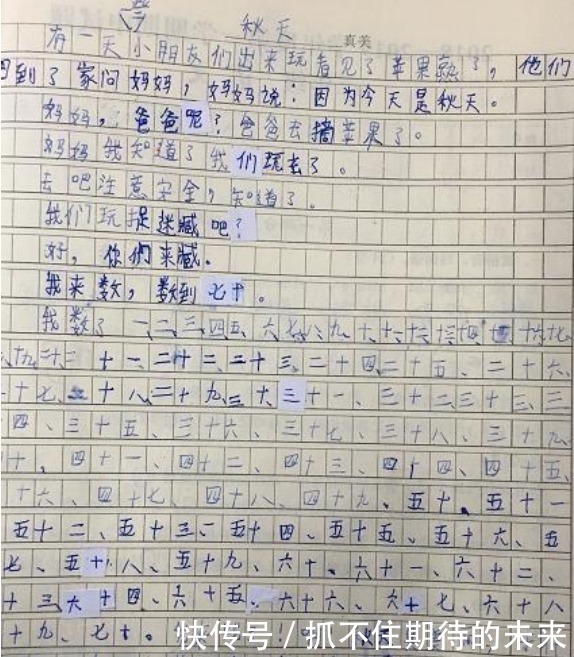 秋天
真美
有一天小朋友们出来玩看见了苹果熟了，他们
回到了家问妈妈，妈妈说：因为今天是秋天。
妈妈，爸爸呢？爸爸去摘苹果了。
妈妈我知道了我们玩去了。
去吧注意安全，知道了。
我们玩捉迷藏吧？
好，你们来藏。
我来数，数到七十。
我数了一、二、三、四、五、六、七、八、九、十、十一、十二、十三、十四、十五、十六、十七、
十九、二十、二十一、二十二、二十三、二十四、二十五、二十六、
二十七、二十八、二十九、三十、三十一、三十二、三十三、三
四、三十五、三十六、三十七、三十八、三十九、
十、四十一、四十二、四十三、四十四、四十五、
十六、四十七、四十八、四十九、五十、五十一
五十二、五十三、五十四、五十五、五十六、五
七、五十八、五十九、六十、六十一、六十二、
十三、六十四、六十五、六十六、六十七、六十八
十九、七十。
快传号 / 抓不住期待的未来